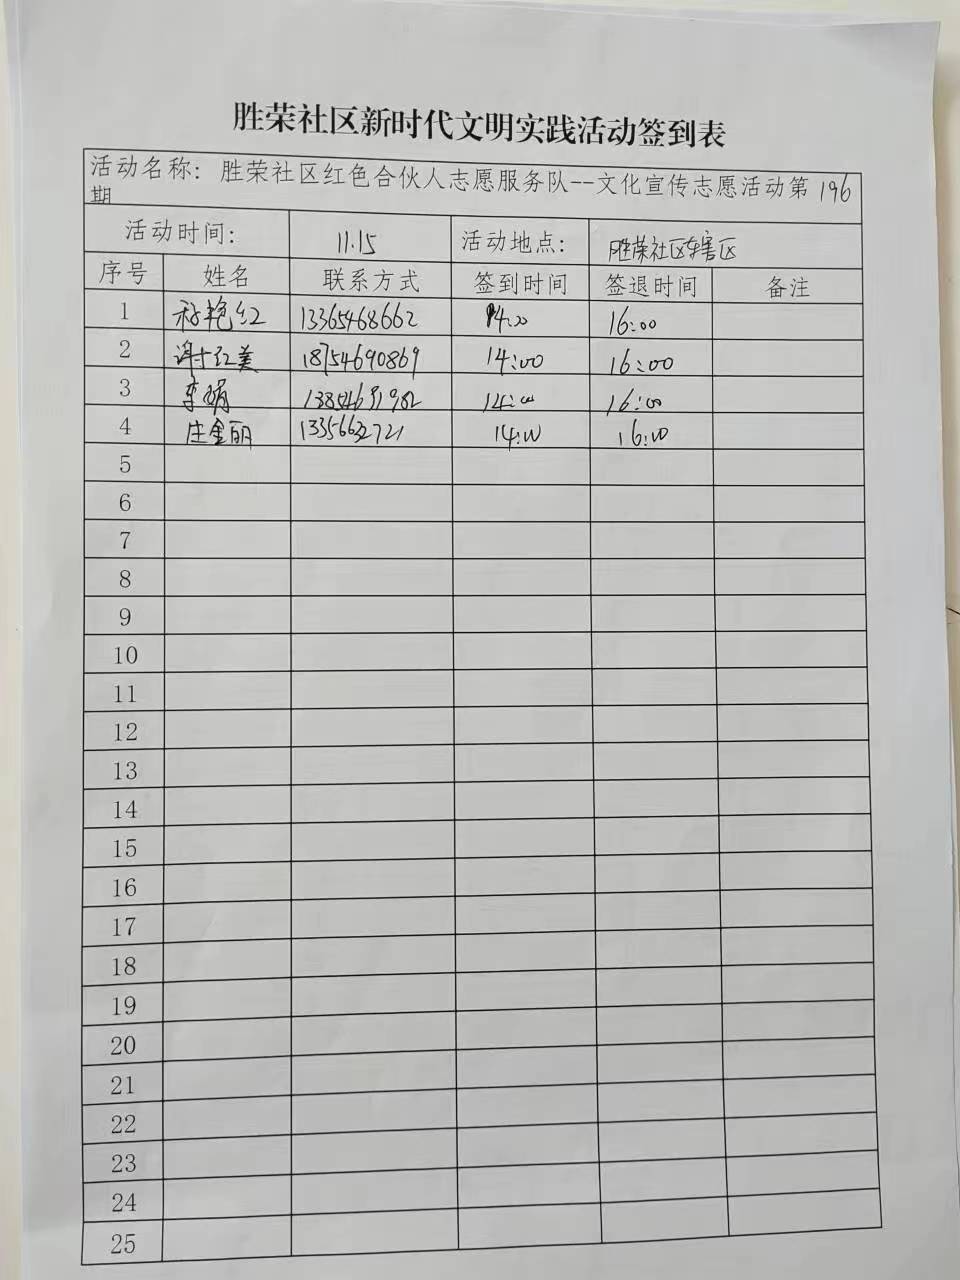 胜荣社区新时代文明实践活动签到表
活动名称：胜荣社区红色合伙人志愿服务队--文化宣传志愿活动第196
期
活动时间： 11.15 活动地点： 胜荣社区辖区
序号 姓名 联系方式 签到时间 签退时间 备注
1 艳红 13365468662 14:00 16:00
2 谢红美 18754690869 14:00 16:00
3 李娟 13854691982 14:00 16:00
4 庄金丽 13356632721 14:00 16:00
5
6
7
8
9
10
11
12
13
14
15
16
17
18
19
20
21
22
23
24
25